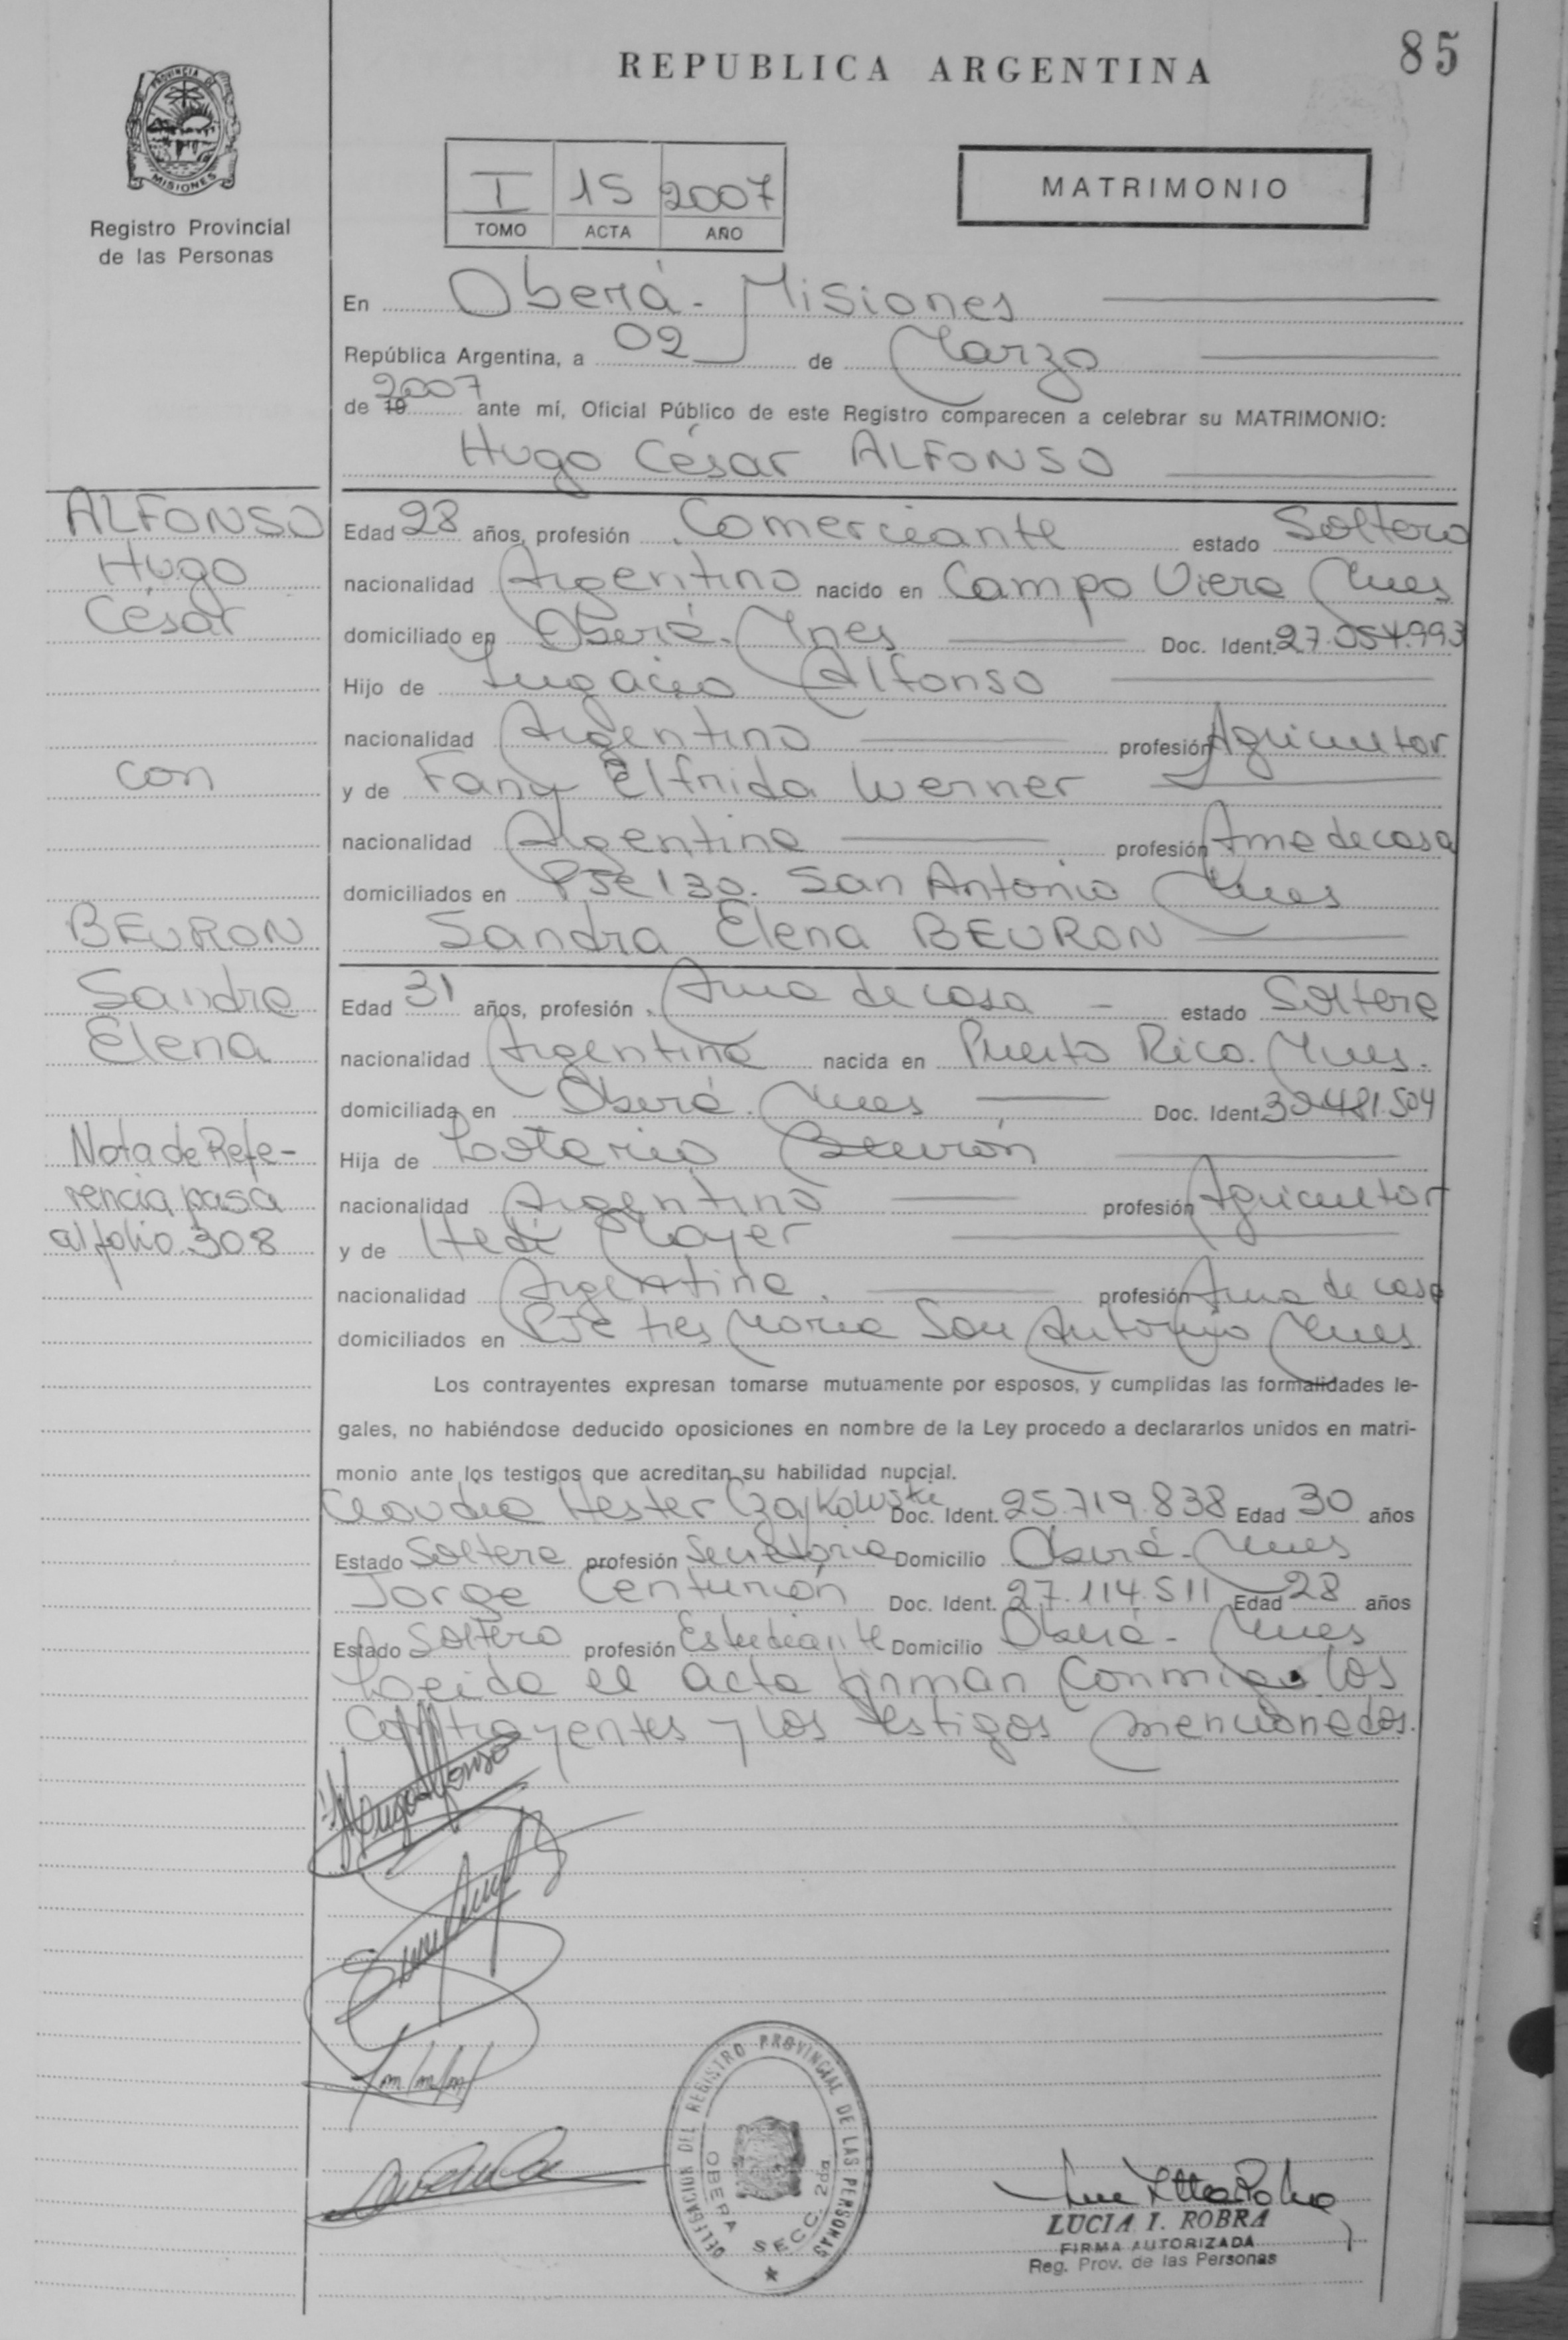 85
REPUBLICA ARGENTINA
PROVINCIA DE
MISIONES
Registro Provincial
de las Personas
I 15 2007
TOMO ACTA AÑO
MATRIMONIO
En Oberá - Misiones
República Argentina, a 02 de Marzo
de 19 2007 ante mí, Oficial Público de este Registro comparecen a celebrar su MATRIMONIO:
Hugo César ALFONSO
ALFONSO
Hugo
César
con
BEURON
Sandra
Elena
Nota de Refe-
rencia pasa
al folio 308
Edad 28 años, profesión Comerciante estado Soltero
nacionalidad Argentino nacido en Campo Viera Mnes
domiciliado en Oberá - Mnes Doc. Ident. 27.054.993
Hijo de Alfonso
nacionalidad Argentino profesión Agricultor
y de Fany Elfrida Werner
nacionalidad Argentina profesión Ama de casa
domiciliados en Pje 130. San Antonio Mnes
Sandra Elena BEURON
Edad 31 años, profesión Ama de casa - estado Soltera
nacionalidad Argentina nacida en Puerto Rico. Mnes.
domiciliada en Oberá. Mnes Doc. Ident. 481.504
Hija de Lotario Beurón
nacionalidad Argentino profesión Agricultor
y de Hedi
nacionalidad Argentina. profesión Ama de casa
domiciliados en Pje tres Maria San Antonio Mnes
Los contrayentes expresan tomarse mutuamente por esposos, y cumplidas las formalidades le-
gales, no habiéndose deducido oposiciones en nombre de la Ley procedo a declararlos unidos en matri-
monio ante los testigos que acreditan su habilidad nupcial.
Claudia Hester Czajkowski Doc. Ident. 25.719.838 Edad 30 años
Estado Soltera profesión Secretaria Domicilio Oberá - Mnes
Jorge Centurión Doc. Ident. 27.114.511 Edad 28 años
Estado Soltero profesión Estudiante Domicilio Oberá - Mnes
Leida el acta firman conmigo los
contrayentes y los testigos mencionados.
Hugo Alfonso
DELEGACION DEL REGISTRO PROVINCIAL DE LAS PERSONAS
OBERA SECC. 2da
LUCIA I. ROBRA
FIRMA AUTORIZADA
Reg. Prov. de las Personas